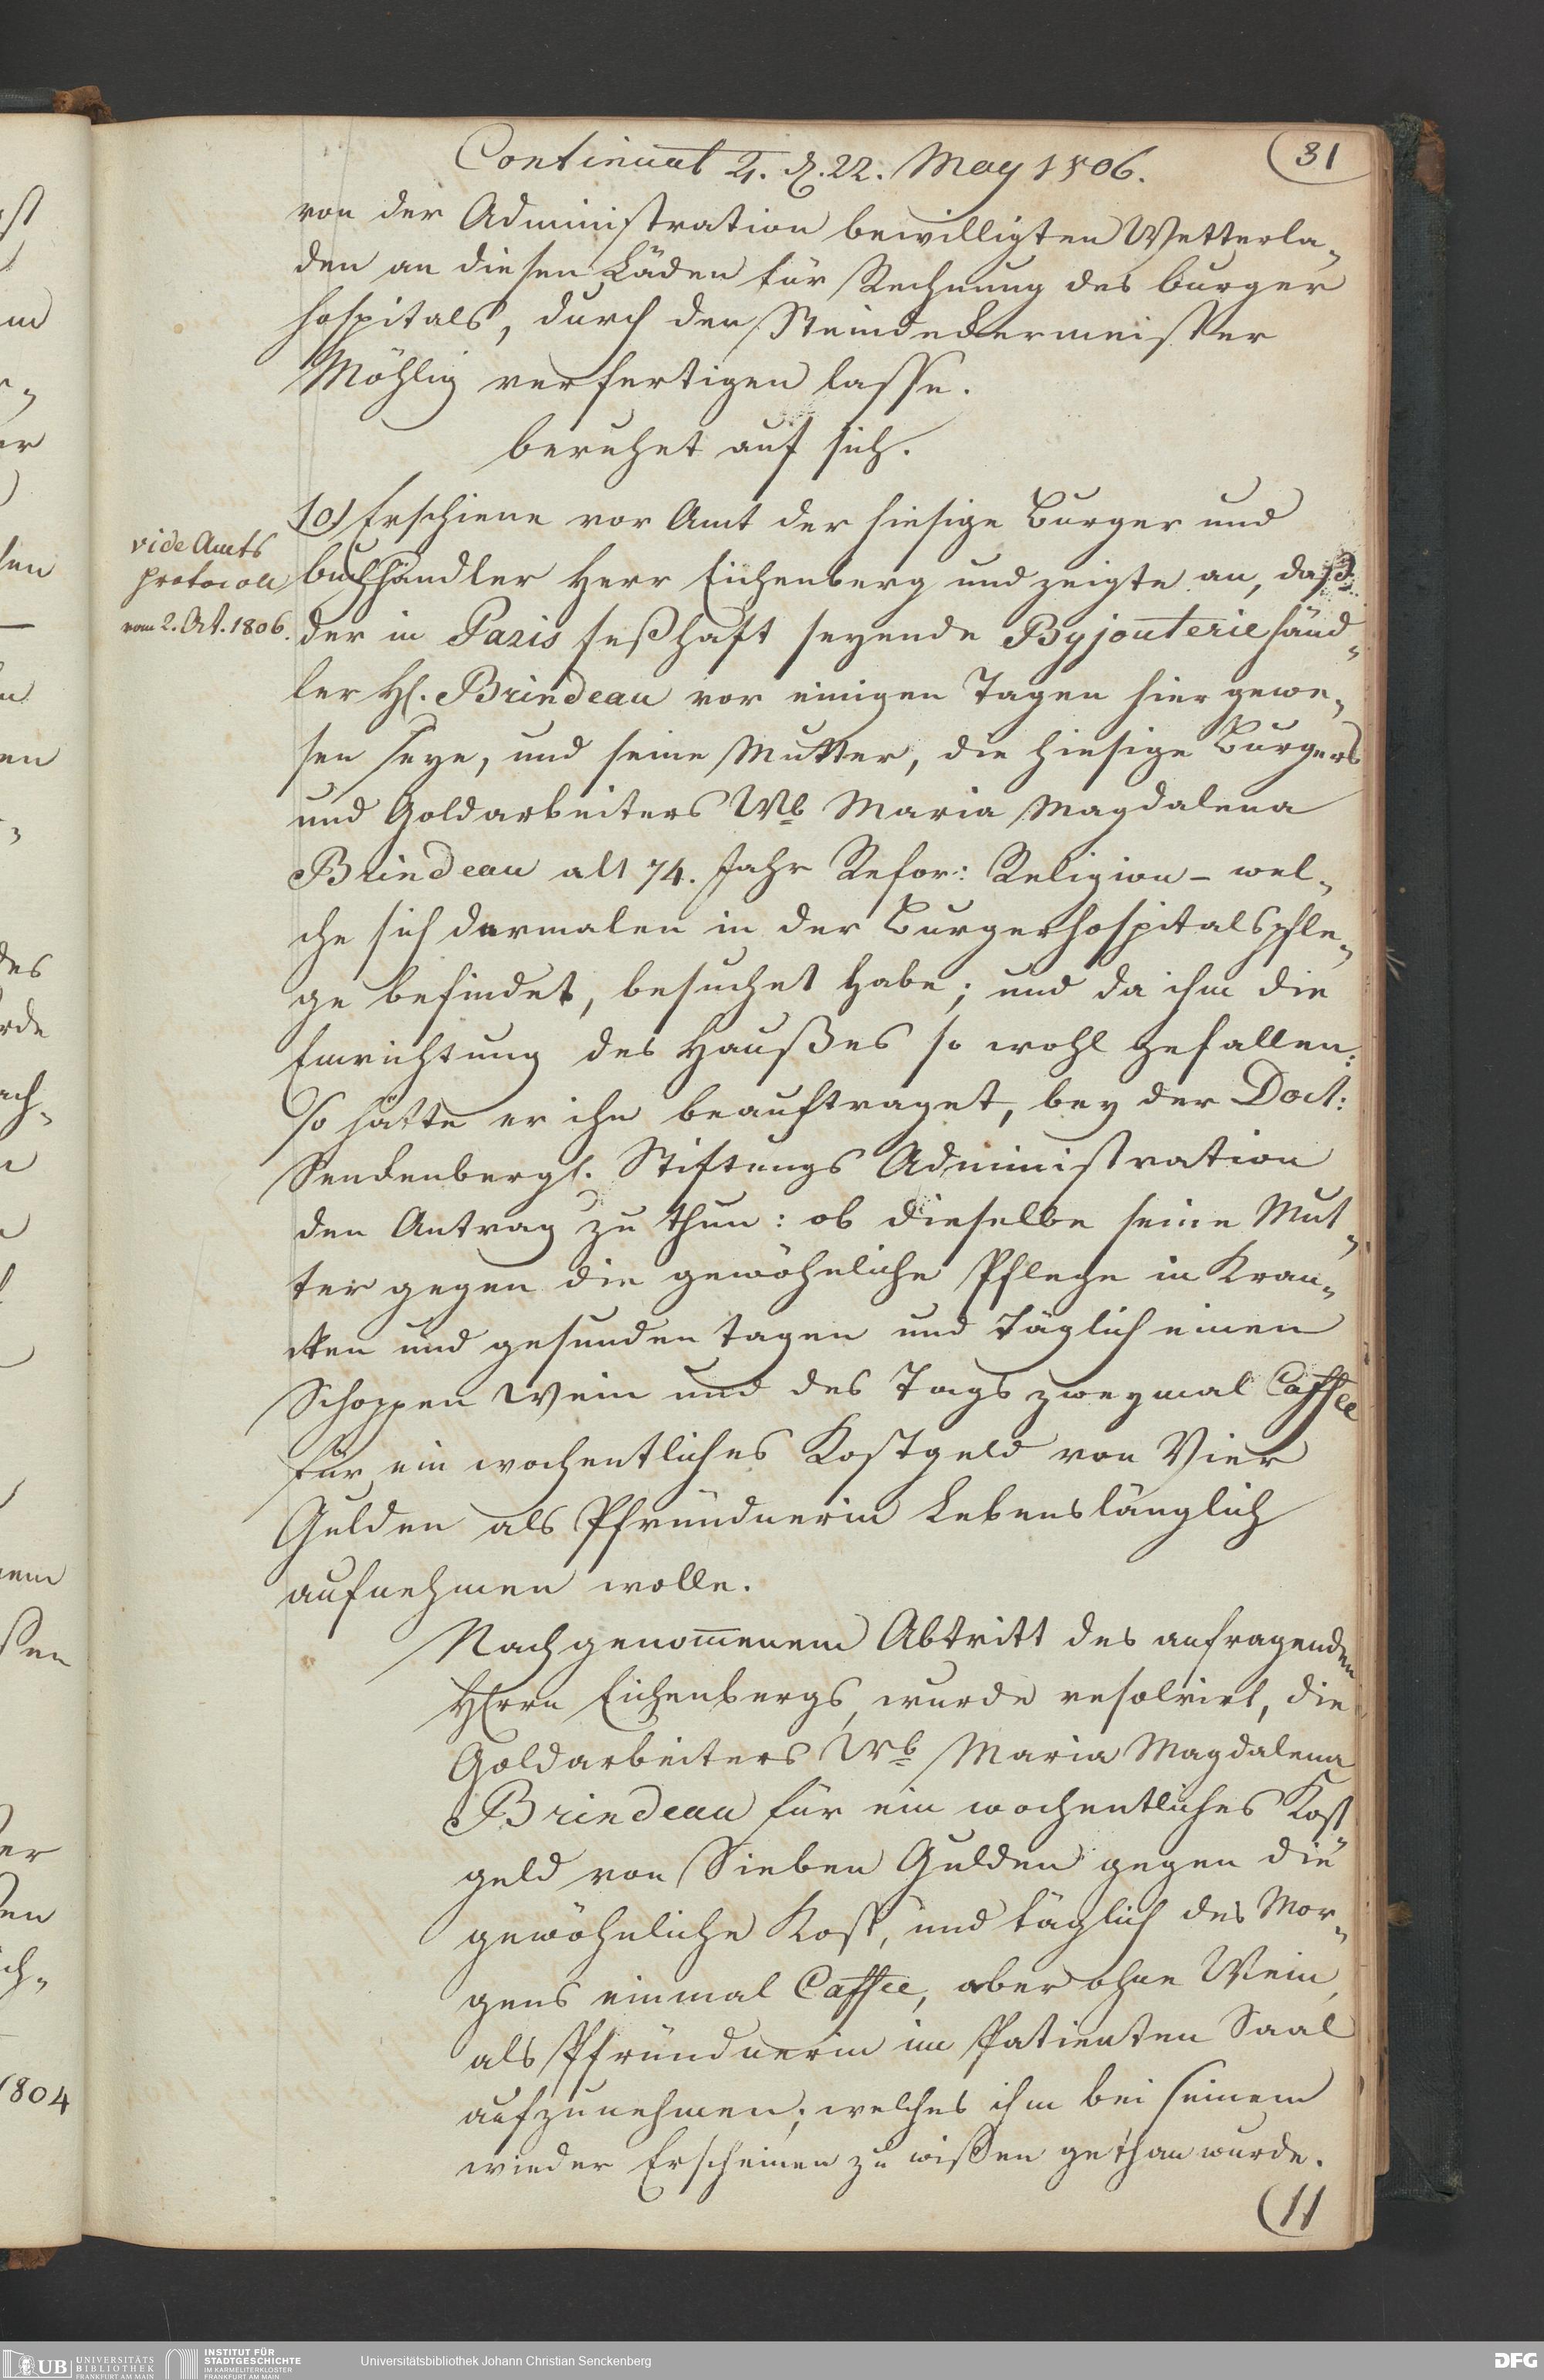 Continuat ♃. d. 22. May 1806.
31
von der Administration bewilligten Wetterla„
den an diesen Läden für Rechnung des burger
hospitals, durch den Steindeckermeister
Möhlig verfertigen lasse.
beruhet auf sich.
10) Erschiene vor Amt der hiesige Burger und
vide Amts
protocoll
vom 2. Oct. 1806.
buchhändler Herr Eichenberg und zeigte an, daß
der in Paris seßhaft seyende Byjouteriehänd„
ler H. Brindeau vor einigen Tagen hier gewe„
sen seye, und seine Mutter, die hiesige Burgers
und Goldarbeiters Wb Maria Magdalena
Brindeau alt 74. Jahr Refor: Religion – wel„
che sich dermalen in der Burgerhospitalspfle„
ge befindet, besuchet habe; und da ihm die
Einrichtung des Haußes so wohl gefallen:
so hätte er ihn beauftraget, bey der Doct:
Senckenbergs. Stiftungs Administration
den Antrag zu thun: ob dieselbe seine Mut„
ter gegen die gewöhnliche Pflege in Kran„
cken und gesunden tagen und täglich einen
Schoppen Wein und des Tags zweymal Caffee
für ein wochentliches Kostgeld von Vier
Gulden als Pfründnerin Lebenslänglich
aufnehmen wolle.
Nach genom̅enem Abtritt des anfragenden
Herrn Eichenbergs, wurde resolvirt, die
Goldarbeiters Wb Maria Magdalena
Brindeau für ein wochentliches Kost
geld von Sieben Gulden gegen die
gewöhnliche Kost, und täglich des Mor„
gens einmal Caffee, aber ohne Wein,
als Pfründnerin im Patienten Saal
aufzunehmen; welches ihm bei seinem
wieder Erscheinen zu wißen gethan wurde.
(11
1804
UB UNIVERSITÄTS
BIBLIOTHEK
FRANKFURT AM MAIN
INSTITUT FÜR
STADTGESCHICHTE
IM KARMELITERKLOSTER
FRANKFURT AM MAIN
Universitätsbibliothek Johann Christian Senckenberg
DFG